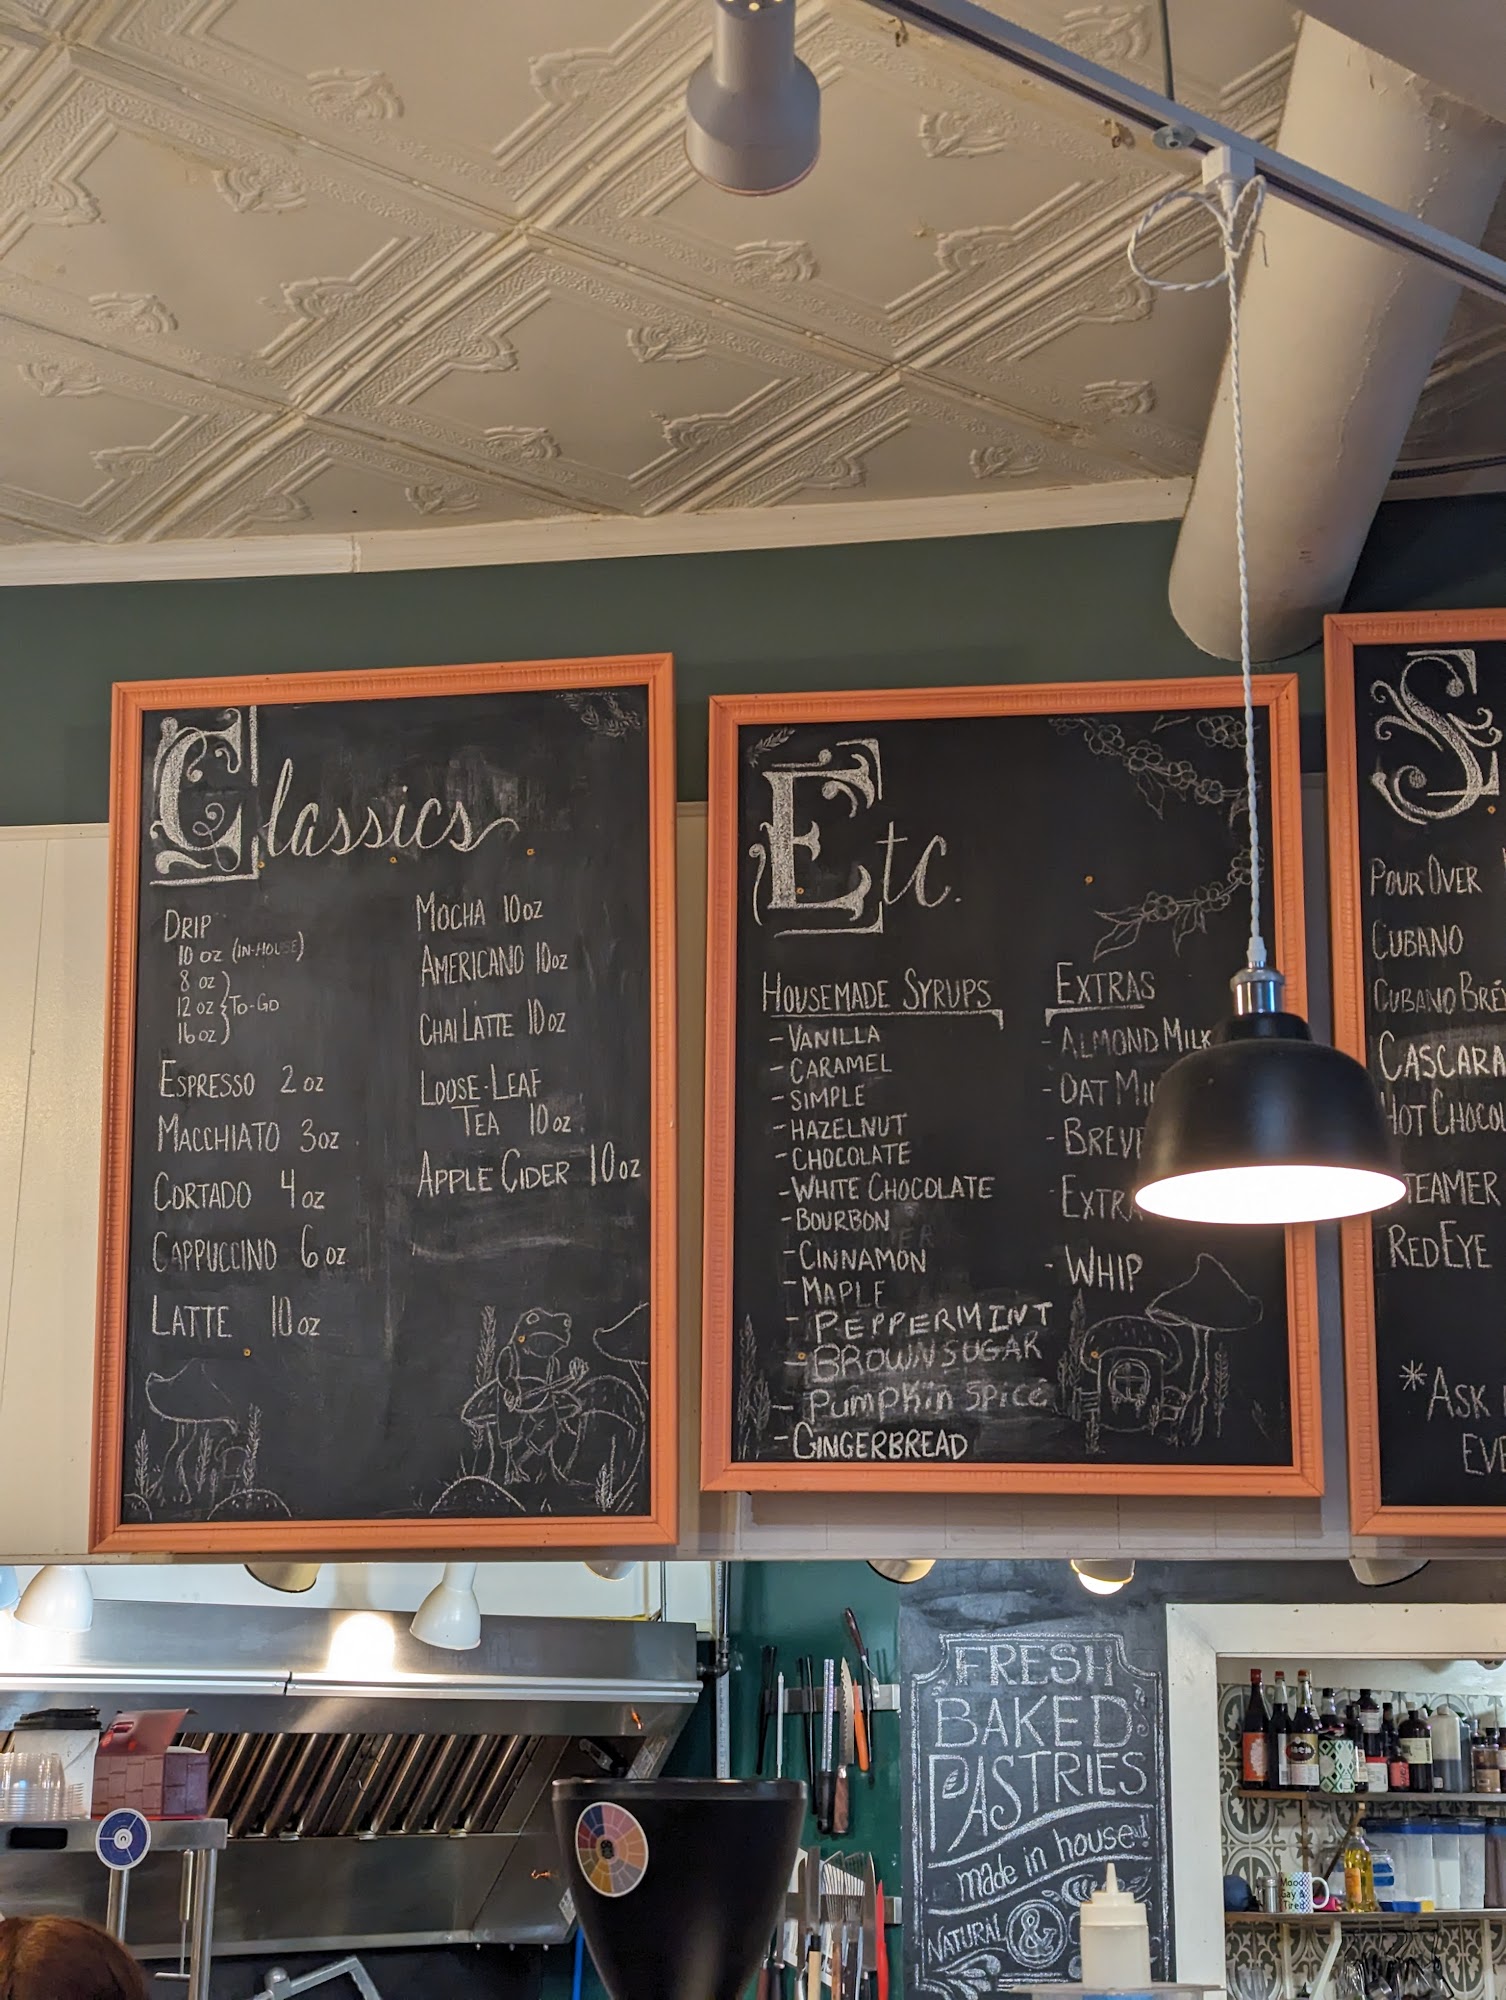 Classics
DRIP
10 OZ (IN-HOUSE)
8 OZ
12 OZ TO-GO
16 OZ
ESPRESSO 2 OZ
MACCHIATO 3 OZ
CORTADO 4 OZ
CAPPUCCINO 6 OZ
LATTE 10 OZ
MOCHA 10 OZ
AMERICANO 10 OZ
CHAI LATTE 10 OZ
LOOSE-LEAF
TEA 10 OZ
APPLE CIDER 10 OZ
Etc.
HOUSEMADE SYRUPS
- VANILLA
- CARAMEL
- SIMPLE
- HAZELNUT
- CHOCOLATE
- WHITE CHOCOLATE
- BOURBON
- CINNAMON
- MAPLE
- PEPPERMINT
- BROWN SUGAR
- Pumpkin spice
- GINGERBREAD
EXTRAS
- ALMOND MILK
- OAT
- EXTRA
- WHIP
S
POUR OVER
CUBANO
CUBANO
CASCARA
HOT
STEAMER
RED EYE
*ASK
FRESH
BAKED
PASTRIES
made in house
NATURAL &
Mood
Gay &
Tired